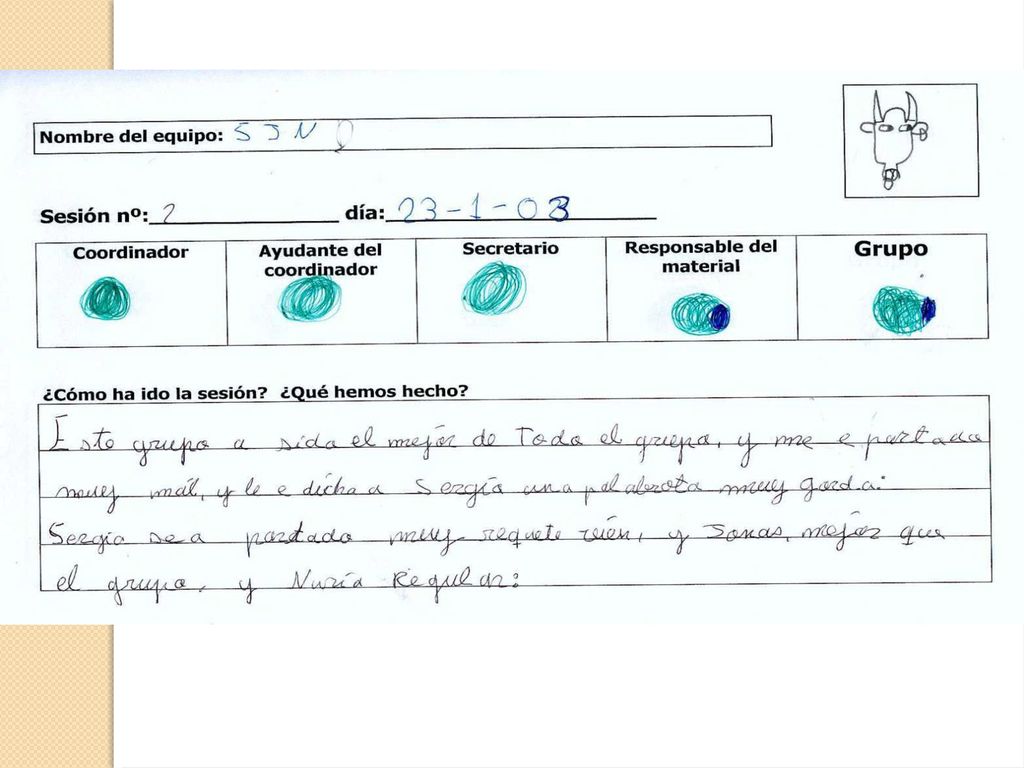 Nombre del equipo: S J N
Sesión nº: 2 día: 23-1-03
Coordinador Ayudante del coordinador Secretario Responsable del material Grupo
¿Cómo ha ido la sesión? ¿Qué hemos hecho?
Este grupo a sido el mejór de Todo el grupo, y me e portado
muy mál, y le e dicho a Sergio una palabrota muy gorda:
Sergio se a portado muy requete vién, y Jonas, mejór que
el grupo, y Nuria Regular: